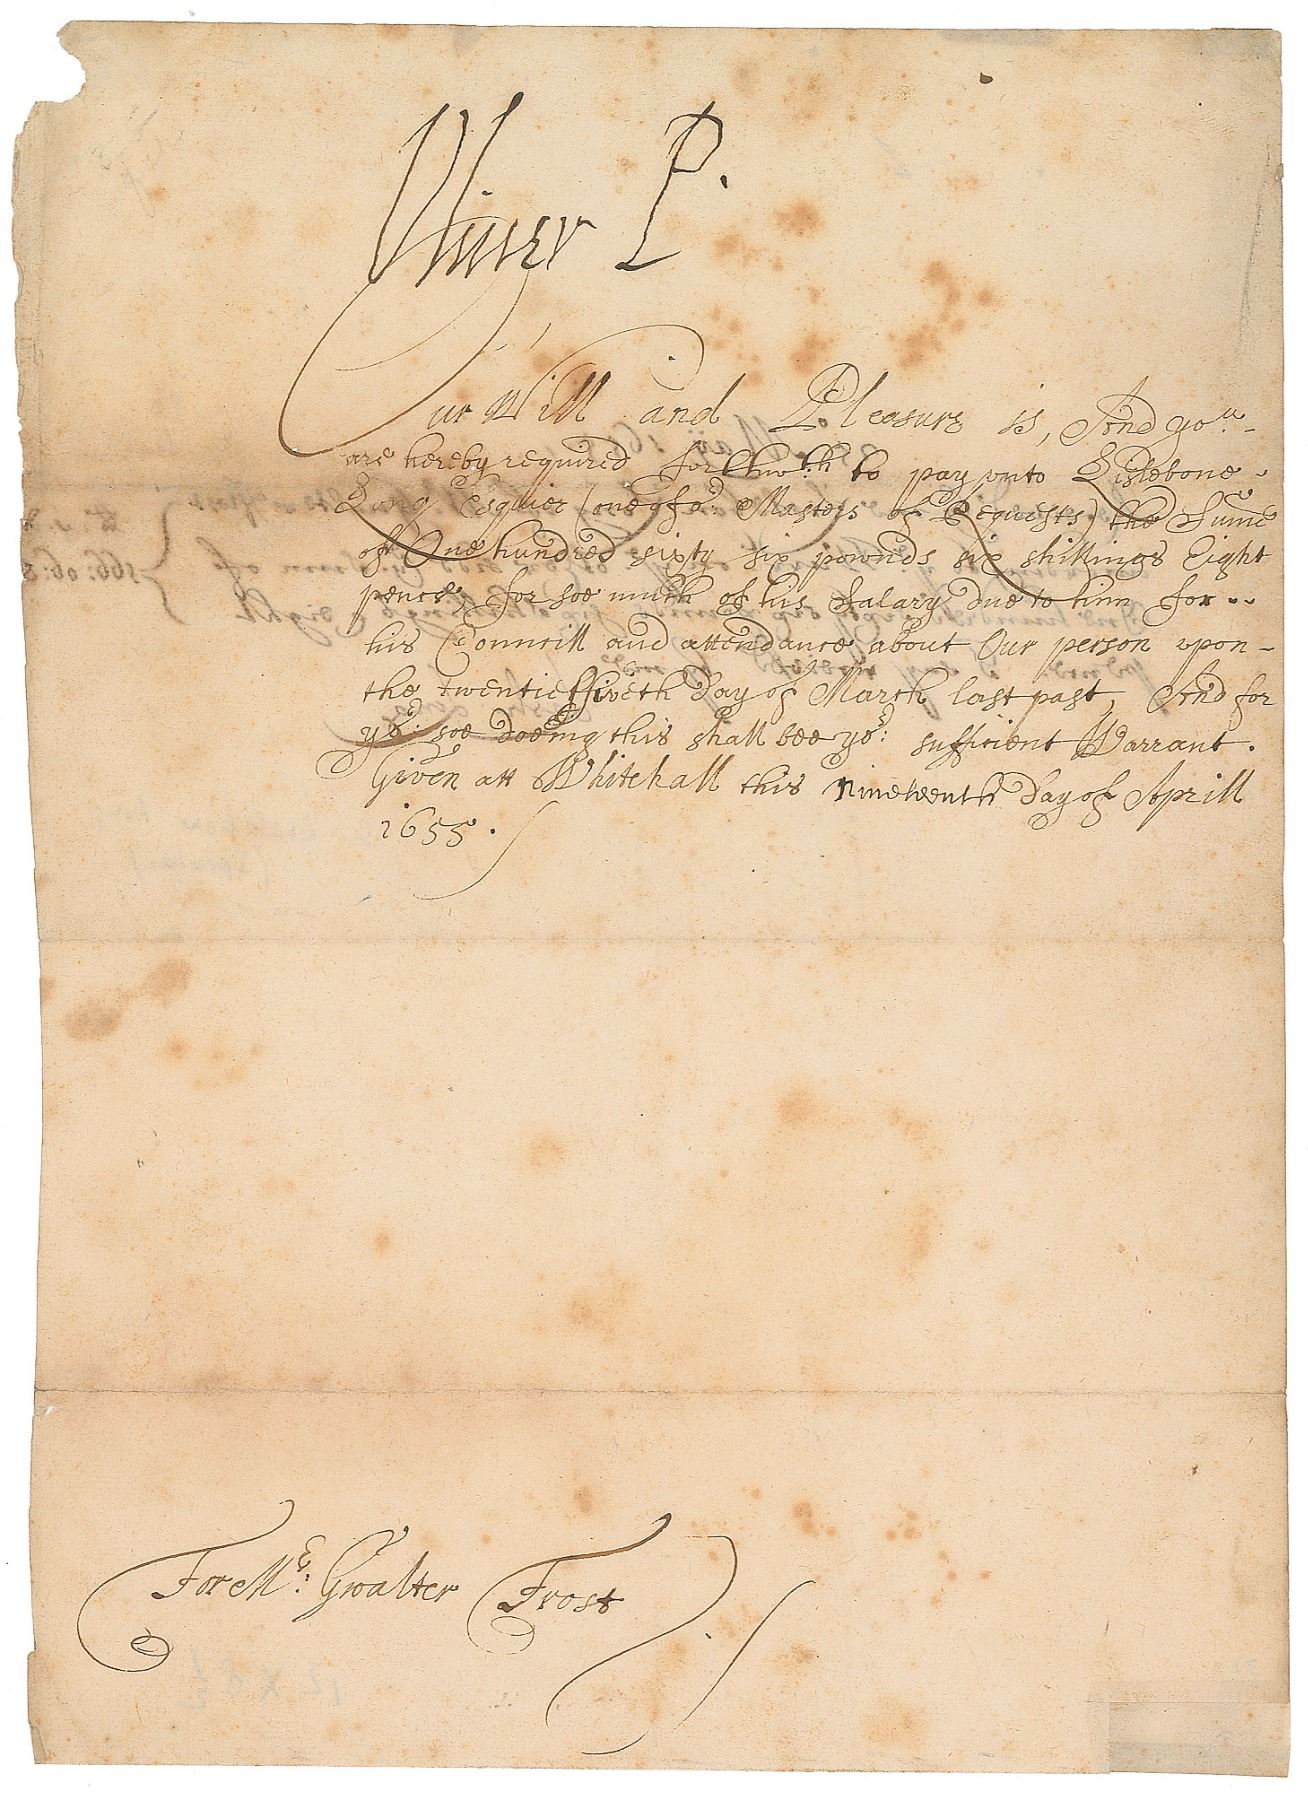 Oliver P.
Our Will and Pleasure is, And you
are hereby required forthwith to pay vnto Lislebone
Long Esquier (one of or: Masters of Requests) the Sume
of One hundred sixty six pownds six shillings Eight
pence, for soe much of his Salary due to him for
his Councill and attendance about Our person vpon
the twentie fiveth day of March last past, And for
yor: soe doeing this shall bee yor: sufficient Warrant.
Given att Whitehall this nineteenth day of Aprill
1655.
For Mr: Gwalter Frost